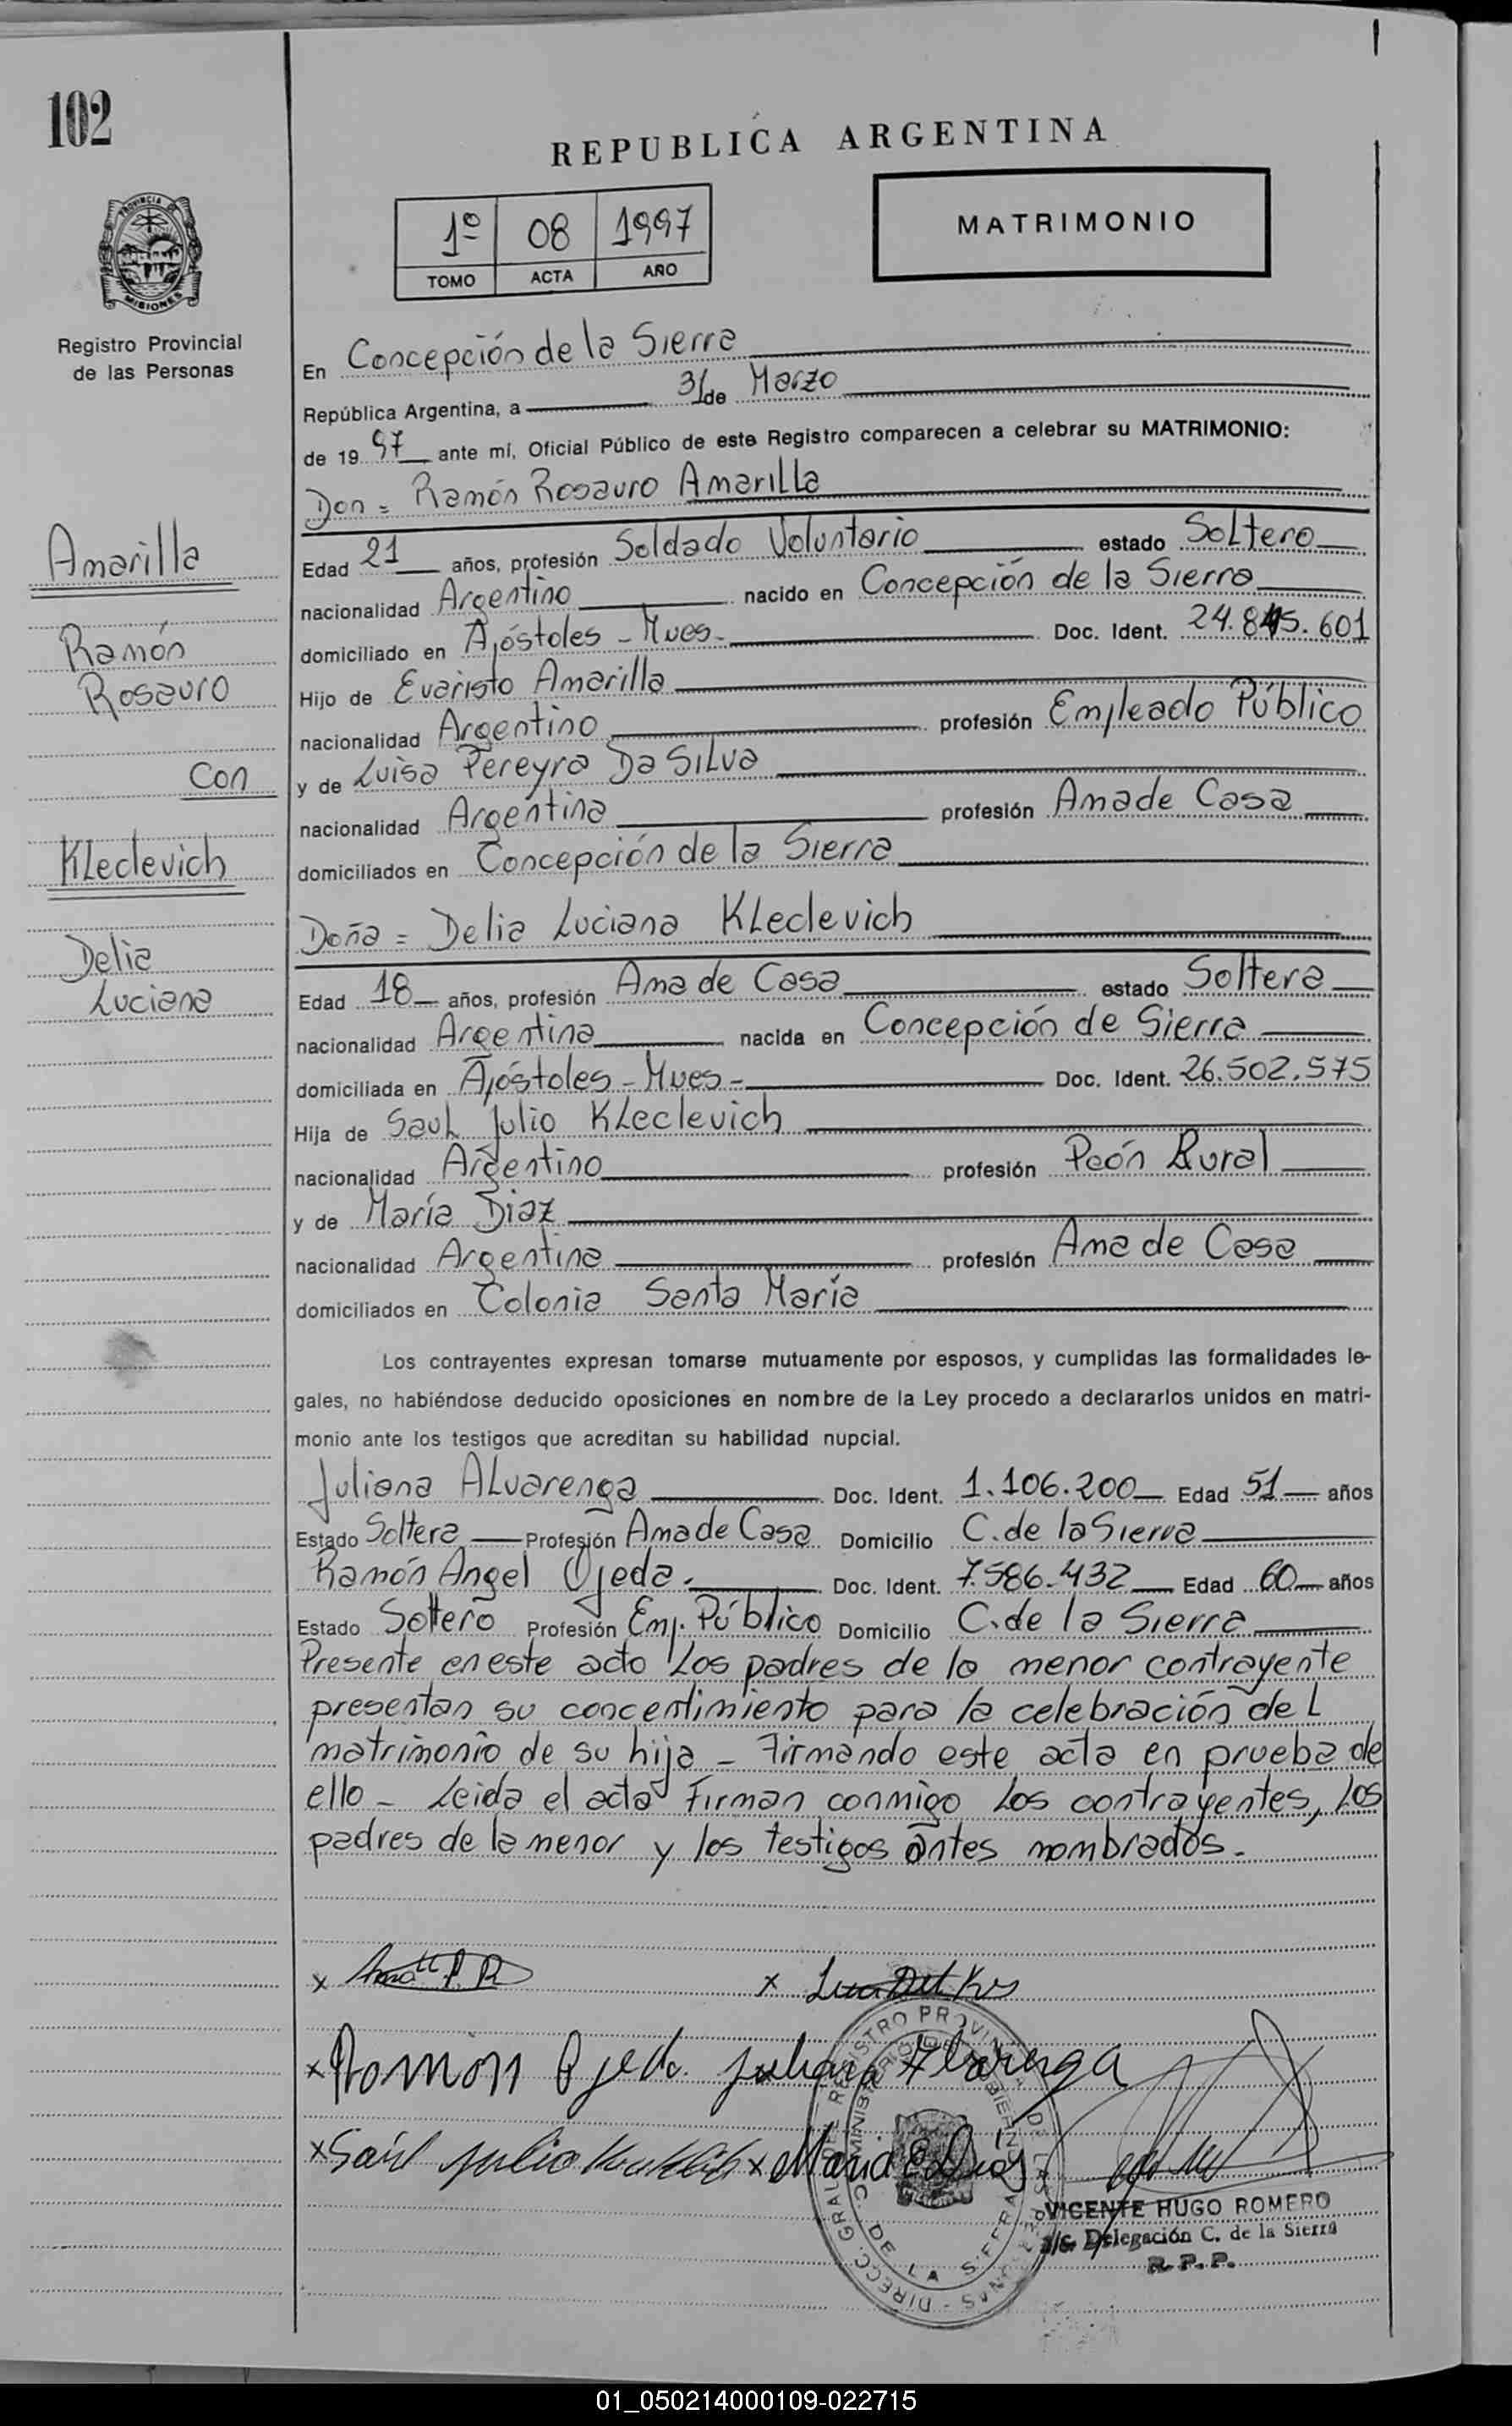 102
REPUBLICA ARGENTINA
1º 08 1997
TOMO ACTA AÑO
MATRIMONIO
PROVINCIA DE
MISIONES
Registro Provincial
de las Personas
En Concepción de la Sierra
República Argentina, a 31 de Marzo
de 19 97 ante mí, Oficial Público de este Registro comparecen a celebrar su MATRIMONIO:
Don = Ramón Rosauro Amarilla
Amarilla
Ramón
Rosauro
Con
Kleclevich
Delia
Luciana
Edad 21 años, profesión Soldado Voluntario estado Soltero
nacionalidad Argentino nacido en Concepción de la Sierra
domiciliado en Apóstoles - Mnes - Doc. Ident. 24.845.601
Hijo de Evaristo Amarilla
nacionalidad Argentino profesión Empleado Público
y de Luisa Pereyra Da Silva
nacionalidad Argentina profesión Ama de Casa
domiciliados en Concepción de la Sierra
Doña = Delia Luciana Kleclevich
Edad 18 años, profesión Ama de Casa estado Soltera
nacionalidad Argentina nacida en Concepción de Sierra
domiciliada en Apóstoles - Mnes - Doc. Ident. 26.502.575
Hija de Saul Julio Kleclevich
nacionalidad Argentino profesión Peón Rural
y de María Diaz
nacionalidad Argentina profesión Ama de Casa
domiciliados en Colonia Santa María
Los contrayentes expresan tomarse mutuamente por esposos, y cumplidas las formalidades le-
gales, no habiéndose deducido oposiciones en nombre de la Ley procedo a declararlos unidos en matri-
monio ante los testigos que acreditan su habilidad nupcial.
Juliana Alvarenga Doc. Ident. 1.106.200 Edad 51 años
Estado Soltera Profesión Ama de Casa Domicilio C. de la Sierra
Ramón Angel Ojeda. Doc. Ident. 7.586.432 Edad 60 años
Estado Soltero Profesión Emp. Público Domicilio C. de la Sierra
Presente en este acto Los padres de la menor contrayente
presentan su concentimiento para la celebración del
matrimonio de su hija - Firmando este acta en prueba de
ello - Leida el acta Firman conmigo Los contrayentes, Los
padres de la menor y los testigos antes nombrados.
x x
x Ramón Ojeda. Juliana Alvarenga
x Saúl Julio x Maria
VICENTE HUGO ROMERO
a/c. Delegación C. de la Sierra
R.P.P.
01_050214000109-022715